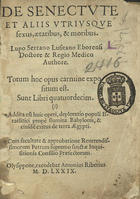 DE SENECTVTE
ET ALIIS VTRIVSQVE
sexus, ætatibus, & moribus.
Lupo Serrano Lusitano Eborensi
Doctore & Regio Medico
Authore.
Totum hoc opus carmine exposi
tum est.
Sunt Libri quatuordecim.
Addita est huic operi, deploratio populi Is-
raelitici propè flumina Babylonis, &
eiusdē exitus de terra Ægypti.
Cum facultate & approbatione Reverendis-
simorum Patrum supremo sanctæ Inqui-
sitionis Consilio Præfectorum.
Olyssippone, excudebat Antonius Riberius
M. D. LXXIX.